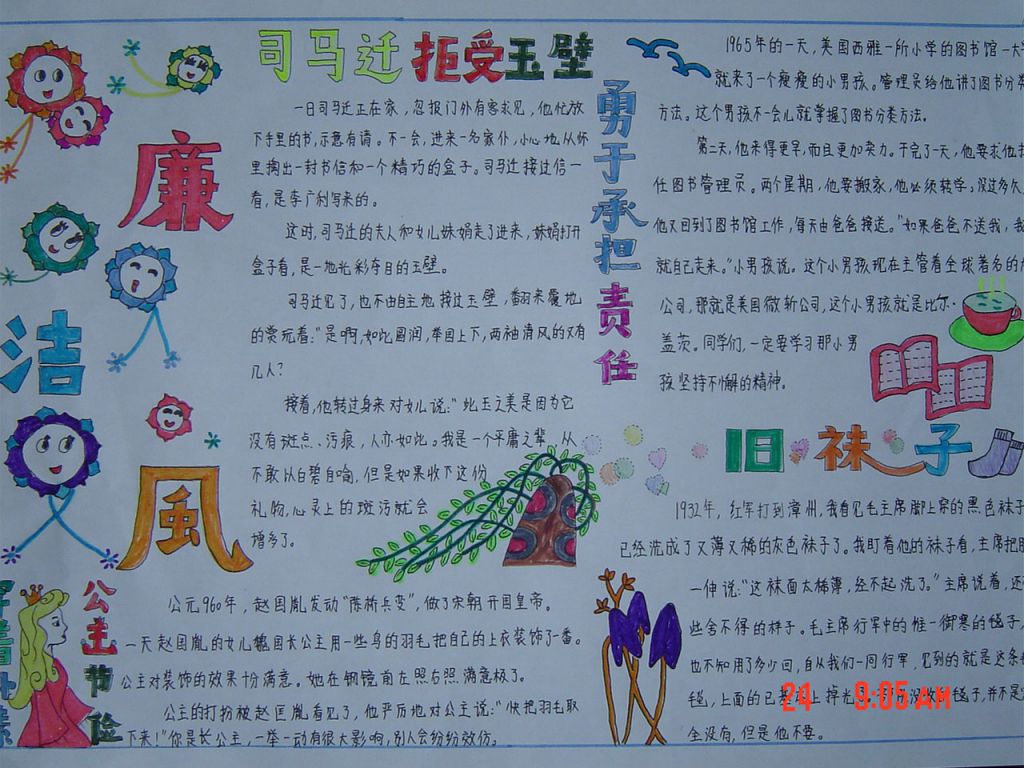 廉
洁
風
司马迁拒受玉壁
一日司马迁正在家，忽报门外有客求见，他忙放
下手里的书，示意有请。不一会，进来一名家仆，小心地从怀
里掏出一封书信和一个精巧的盒子。司马迁接过信一
看，是李广利写来的。
这时，司马迁的夫人和女儿妹娟走了进来，妹娟打开
盒子看，是一地光彩夺目的玉壁。
司马迁见了，也不由自主地接过玉壁，翻来覆地
的赏玩着："是啊，如此圆润，举国上下，两袖清风的又有
几人？
接着，他转过身来对女儿说："此玉之美是因为它
没有斑点、污痕，人亦如此。我是一个平庸之辈，从
不敢以白碧自喻，但是如果收下这份
礼物，心灵上的斑污就会
增多了。
勇于承担责任
1965年的一天，美国西雅一所小学的图书馆一大
就来了一个瘦瘦的小男孩。管理员给他讲了图书分类
方法。这个男孩不一会儿就掌握了图书分类方法。
第二天，他来得更早，而且更加卖力。干完了一天，他要求他担
任图书管理员。两个星期，他要搬家，他必须转学。没过多久
他又回到了图书馆工作，每天由爸爸接送。"如果爸爸不送我，我
就自己走来。"小男孩说。这个小男孩现在主管着全球著名的
公司，那就是美国微斩公司，这个小男孩就是比尔·
盖茨。同学们，一定要学习那小男
孩坚持不懈的精神。
旧袜子
1932年，红军打到漳州，我看见毛主席脚上穿的黑色袜子
已经洗成了又薄又稀的灰色袜子了。我盯着他的袜子看，主席把
一伸说："这袜面太稀薄，经不起洗了。"主席说着，还
些舍不得的样子。毛主席行军中的惟一御寒的毯子，
也不知用了多少回，自从我们一同行军，见到的就是这条
毯，上面的已基本上掉光
毯子，并不是
全没有，但是他不要。
公主节俭
公元960年，赵匡胤发动"陈桥兵变"，做了宋朝开国皇帝。
一天赵匡胤的女儿魏国长公主用一些鸟的羽毛把自己的上衣装饰了一番。
公主对装饰的效果十份满意。她在钢镜前左照右照满意极了。
公主的打扮被赵匡胤看见了，他严厉地对公主说："快把羽毛取
下来！"你是长公主，一举一动有很大影响，别人会纷纷效仿。
24 9:05 AM